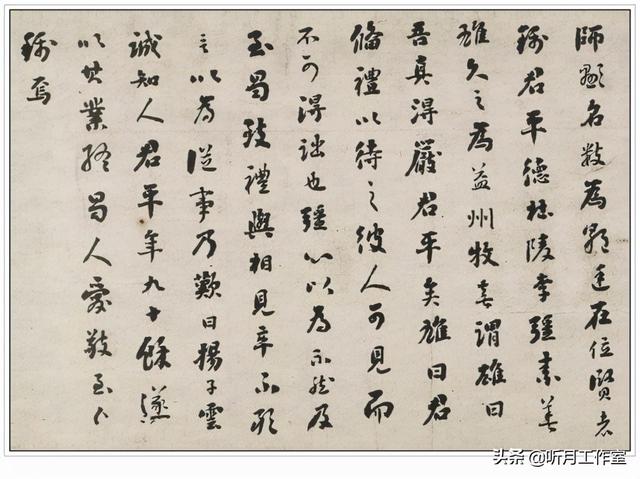 師顯名數為朝廷在位賢者
稱君平德杜陵李彊素善
雄久之為益州牧喜謂雄曰
吾真得嚴君平矣雄曰君
備禮以待之彼人可見而
不可得詘也彊心以為不然及
至蜀致禮與相見卒不敢
言以為從事乃歎曰揚子雲
誠知人君平年九十餘遂
以其業終蜀人愛敬至今
稱焉
头条 @听月工作室